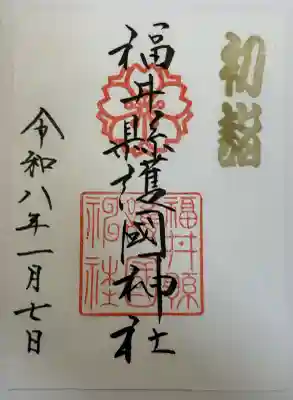 初詣
福井縣護國神社
福井縣護國神社
令和八年一月七日